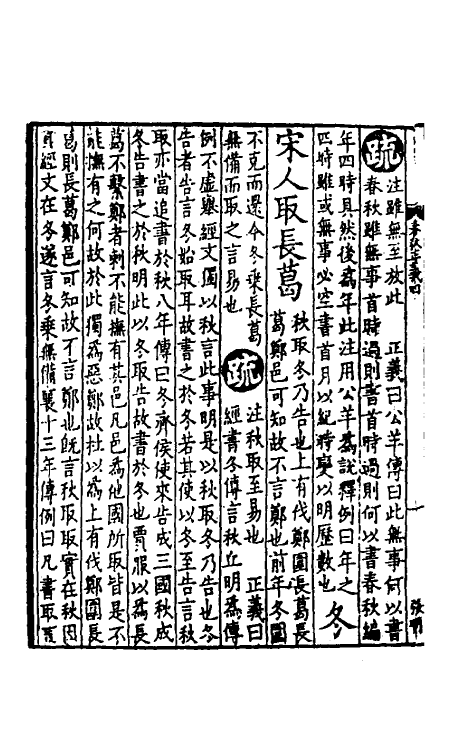 春秋正義四
疏 注雖無至放此 正義曰公羊傳曰此無事何以書
春秋雖無事首時過則書首時過則何以書春秋編
年四時具然後為年此注用公羊為說釋例曰年之
四時雖或無事必空書首月以紀時變以明歷數也 冬
宋人取長葛 秋取冬乃告也上有伐鄭圍長葛長
葛鄭邑可知故不言鄭也前年冬圍
不克而還今冬乘長葛
無備而取之言易也 疏 注秋取至易也 正義曰
經書冬傳言秋丘明為傳
例不虛舉經文獨以秋言此事明是以秋取冬乃告也冬
告者告言冬始取耳故書之於冬若其使以冬至告言秋
取亦當追書於秋八年傳曰冬齊侯使來告成三國秋成
冬告書之於秋明此以冬取告故書於冬也賈服以為長
葛不繫鄭者刺不能撫有其邑凡邑為他國所取皆是不
能撫有之何故於此獨為惡鄭故杜以為上有伐鄭圍長
葛則長葛鄭邑可知故不言鄭也既言秋取取實在秋因
其經文在冬遂言冬乘無備襄十三年傳例曰凡書取言